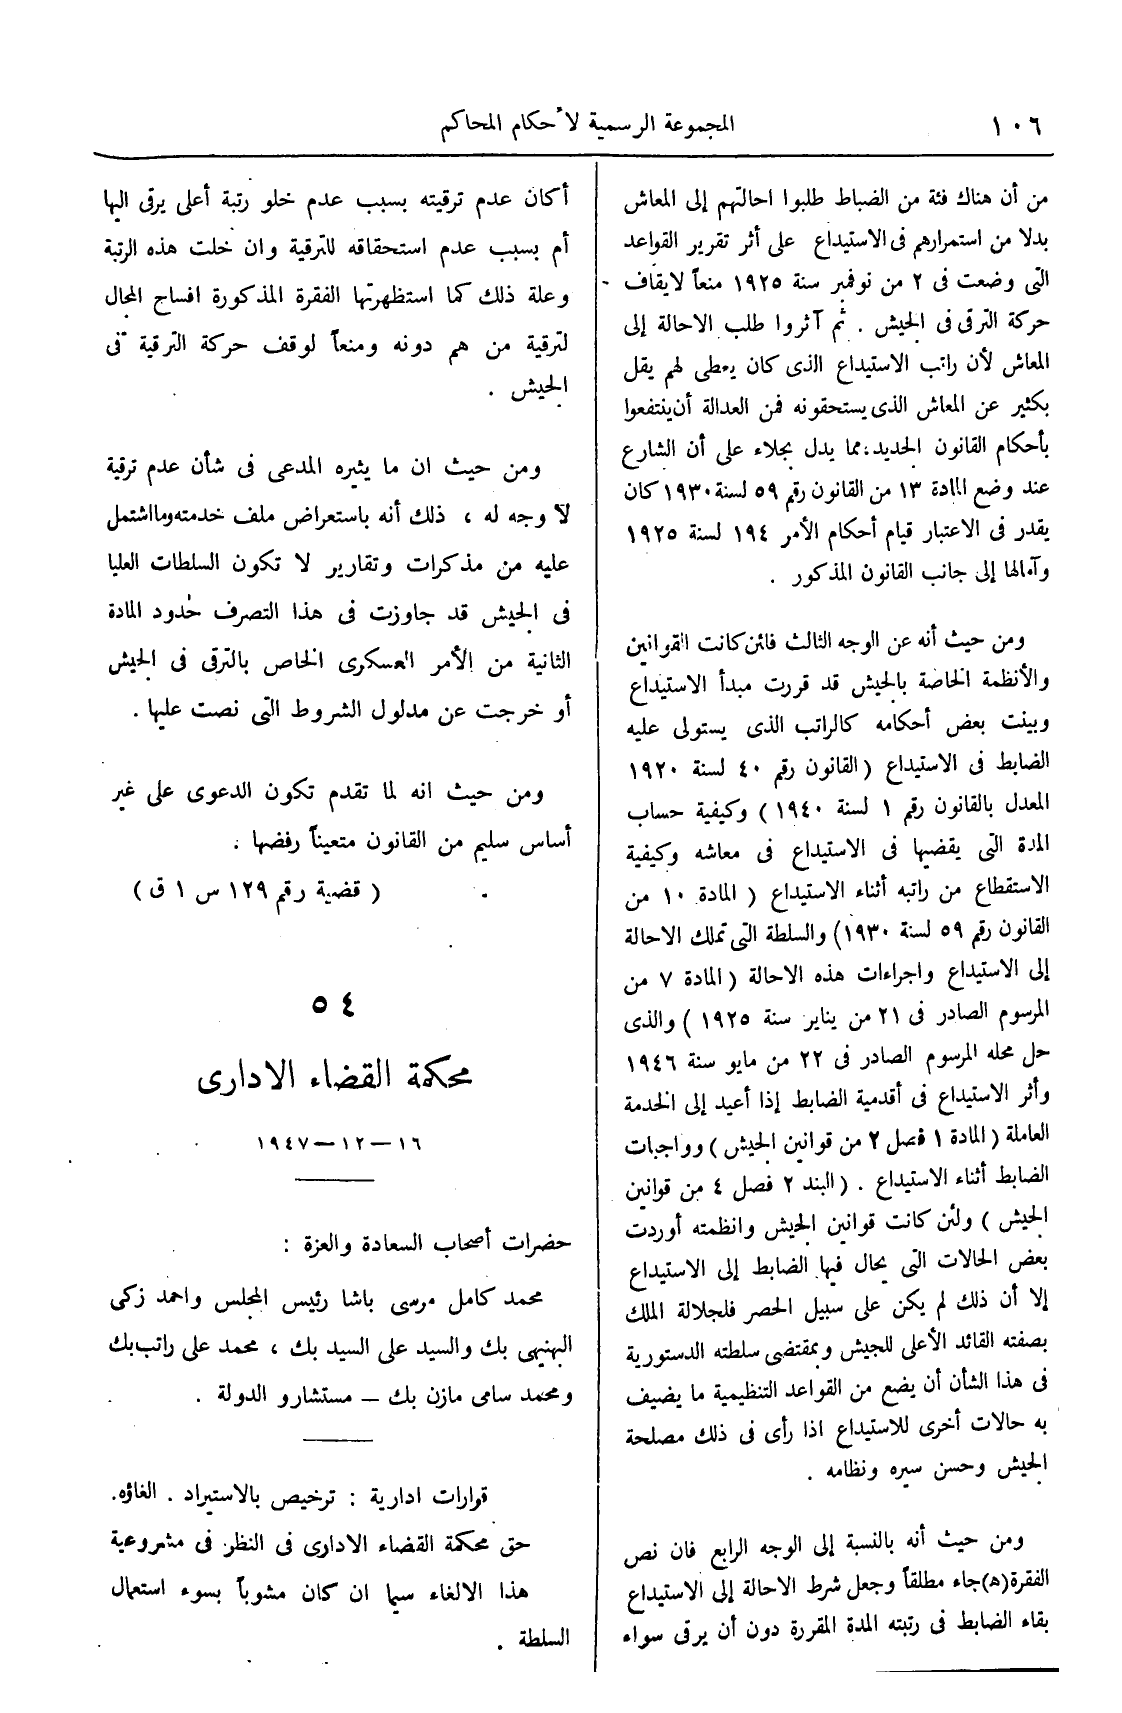 ١٠٦
المجموعة الرسمية لأحكام المحاكم
من أن هناك فئة من الضباط طلبوا احالتهم إلى المعاش
بدلا من استمرارهم فى الاستيداع على أثر تقرير القواعد
التى وضعت فى ٢ من نوفمبر سنة ١٩٢٥ منعاً لايقاف
حركة الترقى فى الجيش . ثم آثروا طلب الاحالة إلى
المعاش لأن راتب الاستيداع الذى كان يعطى لهم يقل
بكثير عن المعاش الذى يستحقونه فمن العدالة أن ينتفعوا
بأحكام القانون الجديد، مما يدل بجلاء على أن الشارع
عند وضع المادة ١٣ من القانون رقم ٥٩ لسنة ١٩٣٠ كان
يقدر فى الاعتبار قيام أحكام الأمر ١٩٤ لسنة ١٩٢٥
وآمالها إلى جانب القانون المذكور .
ومن حيث أنه عن الوجه الثالث فائن كانت القوانين
والأنظمة الخاصة بالجيش قد قررت مبدأ الاستيداع
وبينت بعض أحكامه كالراتب الذى يستولى عليه
الضابط فى الاستيداع ( القانون رقم ٤٠ لسنة ١٩٢٠
المعدل بالقانون رقم ١ لسنة ١٩٤٠ ) وكيفية حساب
المدة التى يقضيها فى الاستيداع فى معاشه وكيفية
الاستقطاع من راتبه أثناء الاستيداع ( المادة ١٠ من
القانون رقم ٥٩ لسنة ١٩٣٠) والسلطة التى تملك الاحالة
إلى الاستيداع واجراءات هذه الاحالة ( المادة ٧ من
المرسوم الصادر فى ٢١ من يناير سنة ١٩٢٥ ) والذى
حل محله المرسوم الصادر فى ٢٢ من مايو سنة ١٩٤٦
وأثر الاستيداع فى أقدمية الضابط إذا أعيد إلى الخدمة
العاملة ( المادة ١ فصل ٢ من قوانين الجيش ) وواجبات
الضابط أثناء الاستيداع . ( البند ٢ فصل ٤ من قوانين
الجيش ) ولئن كانت قوانين الجيش وانظمته أوردت
بعض الحالات التى يحال فيها الضابط إلى الاستيداع
إلا أن ذلك لم يكن على سبيل الحصر فلجلالة الملك
بصفته القائد الأعلى للجيش وبمقتضى سلطته الدستورية
فى هذا الشأن أن يضع من القواعد التنظيمية ما يضيف
به حالات أخرى للاستيداع اذا رأى فى ذلك مصلحة
الجيش وحسن سيره ونظامه .
ومن حيث أنه بالنسبة إلى الوجه الرابع فان نص
الفقرة (ه) جاء مطلقاً وجعل شرط الاحالة إلى الاستيداع
بقاء الضابط فى رتبته المدة المقررة دون أن يرقى سواء
أكان عدم ترقيته بسبب عدم خلو رتبة أعلى يرقى اليها
أم بسبب عدم استحقاقه للترقية وان خلت هذه الرتبة
وعلة ذلك كما استظهرتها الفقرة المذكورة افساح المجال
لترقية من هم دونه ومنعاً لوقف حركة الترقية فى
الجيش .
ومن حيث ان ما يثيره المدعى فى شأن عدم ترقية
لا وجه له ، ذلك أنه باستعراض ملف خدمته وما اشتمل
عليه من مذكرات وتقارير لا تكون السلطات العليا
فى الجيش قد جاوزت فى هذا التصرف حدود المادة
الثانية من الأمر العسكرى الخاص بالترقى فى الجيش
أو خرجت عن مدلول الشروط التى نصت عليها .
ومن حيث انه لما تقدم تكون الدعوى على غير
أساس سليم من القانون متعيناً رفضها .
( قضية رقم ١٢٩ س ١ ق )
٥٤
محكمة القضاء الادارى
١٦ – ١٢ – ١٩٤٧
حضرات أصحاب السعادة والعزة :
محمد كامل مرسى باشا رئيس المجلس واحمد زكى
البهنيهى بك والسيد على السيد بك ، محمد على راتب بك
ومحمد سامى مازن بك – مستشارو الدولة .
قرارات ادارية : ترخيص بالاستيراد . الغاؤه.
حق محكمة القضاء الادارى فى النظر فى مشروعية
هذا الالغاء سيما ان كان مشوباً بسوء استعمال
السلطة .